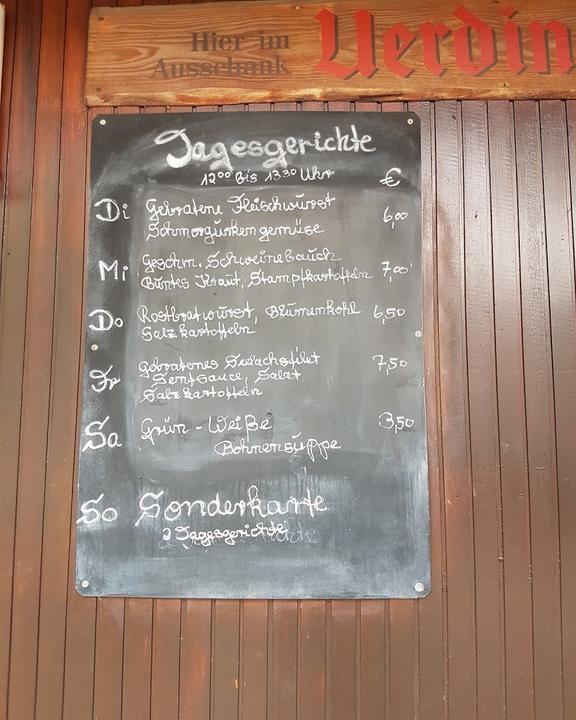 Hier im
Ausschank
Uerdin
Tagesgerichte
12⁰⁰ bis 13³⁰ Uhr €
Di Gebratene Fleischwurst 6,00
Schmorgurkengemüse
Mi Geschm. Schweinebauch
Buntes Kraut, Stampfkartoffeln 7,00
Do Rostbratwurst, Blumenkohl 6,50
Salzkartoffeln
Fr Gebratenes Seelachsfilet 7,50
Senfsauce, Salat
Salzkartoffeln
Sa Grün-Weiße 3,50
Bohnensuppe
So Sonderkarte
2 Tagesgerichte